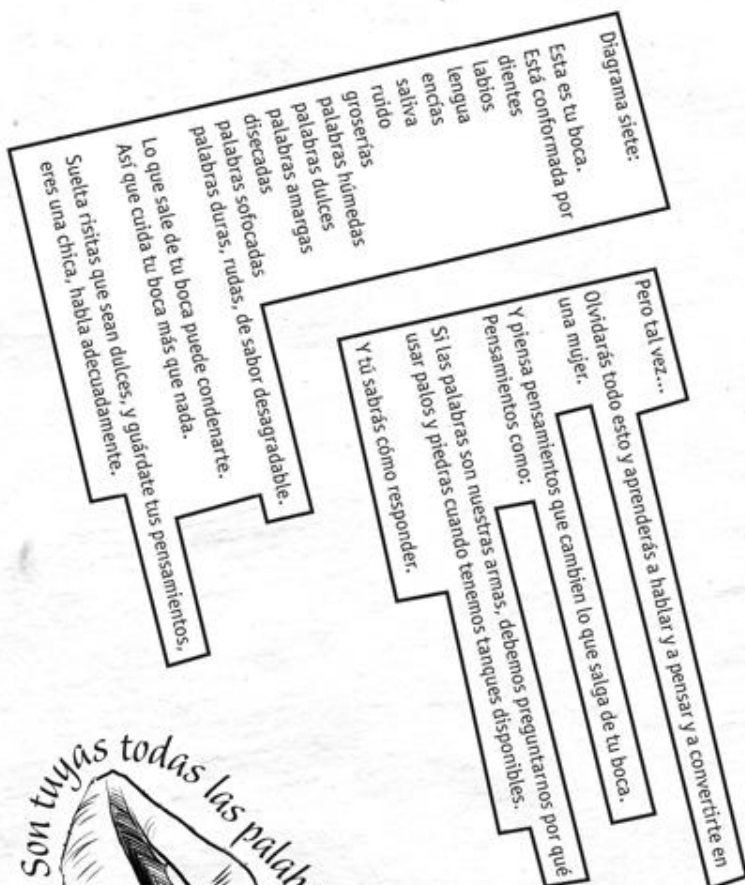 Diagrama siete:
Esta es tu boca.
Está conformada por
dientes
labios
lengua
encías
saliva
ruido
groserías
palabras húmedas
palabras dulces
palabras amargas
disecadas
palabras sofocadas
palabras duras, rudas, de sabor desagradable.
Lo que sale de tu boca puede condenarte.
Así que cuida tu boca más que nada.
Suelta risitas que sean dulces, y guárdate tus pensamientos,
eres una chica, habla adecuadamente.
Pero tal vez...
Olvidarás todo esto y aprenderás a hablar y a pensar y a convertirte en
una mujer.
Y piensa pensamientos que cambien lo que salga de tu boca.
Pensamientos como:
Si las palabras son nuestras armas, debemos preguntarnos por qué
usar palos y piedras cuando tenemos tanques disponibles.
Y tú sabrás cómo responder.
Son tuyas todas las